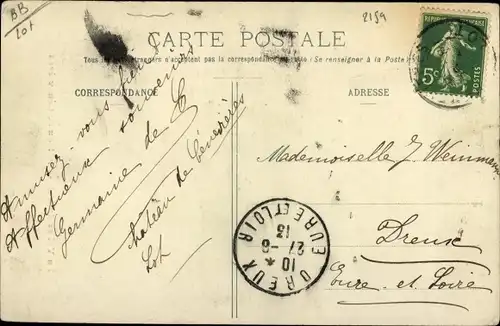 BB
Lot
2159
CARTE POSTALE
Tous les étrangers n'acceptent pas la correspondance (Se renseigner à la Poste)
CORRESPONDANCE
ADRESSE
RÉPUBLIQUE FRANÇAISE
5c
Amusez-vous bien
Affectueux souvenirs
Germaine de
Château de
Lot
Mademoiselle J.
Dreux
Eure-et-Loire
DREUX
EURE ET LOIR
10 *
27-8
13